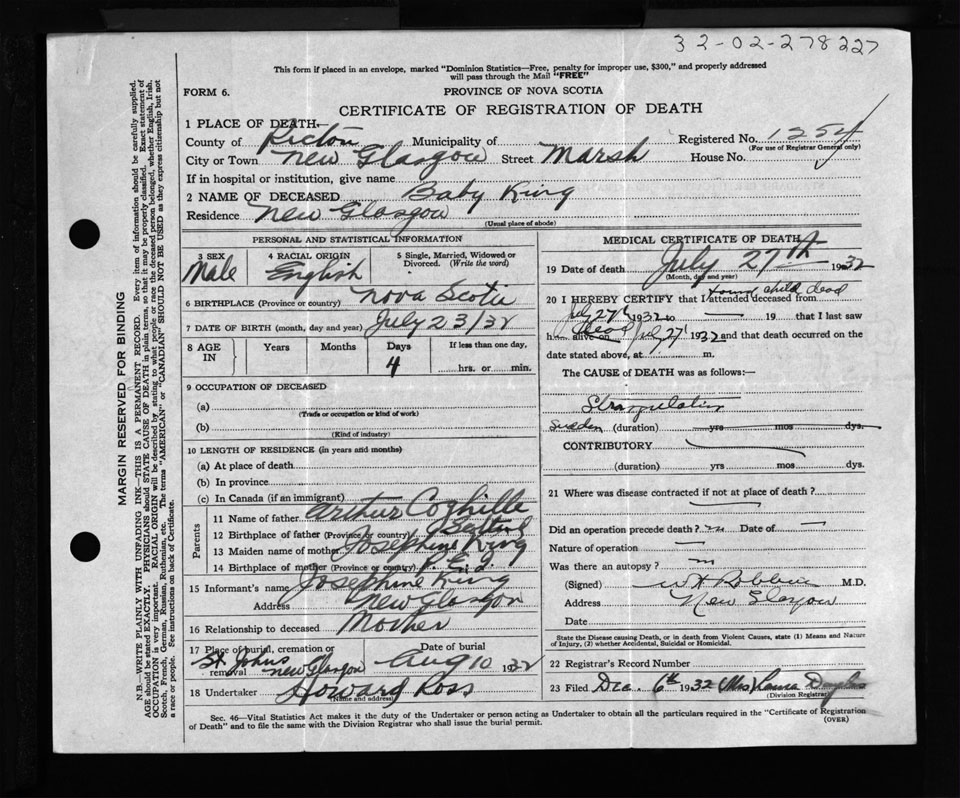 32-02-278227
This form if placed in an envelope, marked "Dominion Statistics—Free, penalty for improper use, $300," and properly addressed
will pass through the Mail "FREE"
FORM 6.
PROVINCE OF NOVA SCOTIA
CERTIFICATE OF REGISTRATION OF DEATH
1 PLACE OF DEATH—
County of Pictou Municipality of Registered No. 1254
(For use of Registrar General only)
City or Town New Glasgow Street Marsh House No.
If in hospital or institution, give name
2 NAME OF DECEASED Baby King
Residence New Glasgow
(Usual place of abode)
PERSONAL AND STATISTICAL INFORMATION
3 SEX 4 RACIAL ORIGIN 5 Single, Married, Widowed or Divorced. (Write the word)
Male English
6 BIRTHPLACE (Province or country) Nova Scotia
7 DATE OF BIRTH (month, day and year) July 23/32
8 AGE IN Years Months Days If less than one day,
4 hrs. or min.
9 OCCUPATION OF DECEASED
(a)
(Trade or occupation or kind of work)
(b)
(Kind of industry)
10 LENGTH OF RESIDENCE (in years and months)
(a) At place of death
(b) In province
(c) In Canada (if an immigrant)
Parents
11 Name of father Arthur Coghille
12 Birthplace of father (Province or country)
13 Maiden name of mother Josephine King
14 Birthplace of mother (Province or country) P.E.I.
15 Informant's name Josephine King
Address New Glasgow
16 Relationship to deceased Mother
17 Place of burial, cremation or removal Date of burial
St. Johns New Glasgow Aug 10 1932
18 Undertaker Howard Ross
(Name and address)
MEDICAL CERTIFICATE OF DEATH
19 Date of death July 27th 1932
(Month, day and year)
found child dead
20 I HEREBY CERTIFY that I attended deceased from
July 27th 1932 to — 19 that I last saw
Dead
h alive on July 27th 1932 and that death occurred on the
date stated above, at m.
The CAUSE of DEATH was as follows:—
Strangulation
Sudden (duration) yrs mos dys.
CONTRIBUTORY
(duration) yrs mos dys.
21 Where was disease contracted if not at place of death?
Did an operation precede death? no Date of —
Nature of operation —
Was there an autopsy? no
(Signed) W H Robbins M.D.
Address New Glasgow
Date
State the Disease causing Death, or in death from Violent Causes, state (1) Means and Nature
of Injury, and (2) whether Accidental, Suicidal or Homicidal.
22 Registrar's Record Number
23 Filed Dec. 6th 1932 (Mrs) Douglas
(Division Registrar)
Sec. 46—Vital Statistics Act makes it the duty of the Undertaker or person acting as Undertaker to obtain all the particulars required in the "Certificate of Registration
of Death" and to file the same with the Division Registrar who shall issue the burial permit.
(OVER)
MARGIN RESERVED FOR BINDING
N.B.—WRITE PLAINLY WITH UNFADING INK—THIS IS A PERMANENT RECORD. Every item of information should be carefully supplied.
AGE should be stated EXACTLY. PHYSICIANS should STATE CAUSE OF DEATH in plain terms, so that it may be properly classified. Exact statement of
OCCUPATION is very important. RACIAL ORIGIN will be described by stating to what people or race the deceased person belonged, whether English, Irish,
Scotch, French, German, Russian, Ruthenian, etc. The terms "AMERICAN" or "CANADIAN" SHOULD NOT BE USED as they express citizenship but not
a race or people. See instructions on back of Certificate.